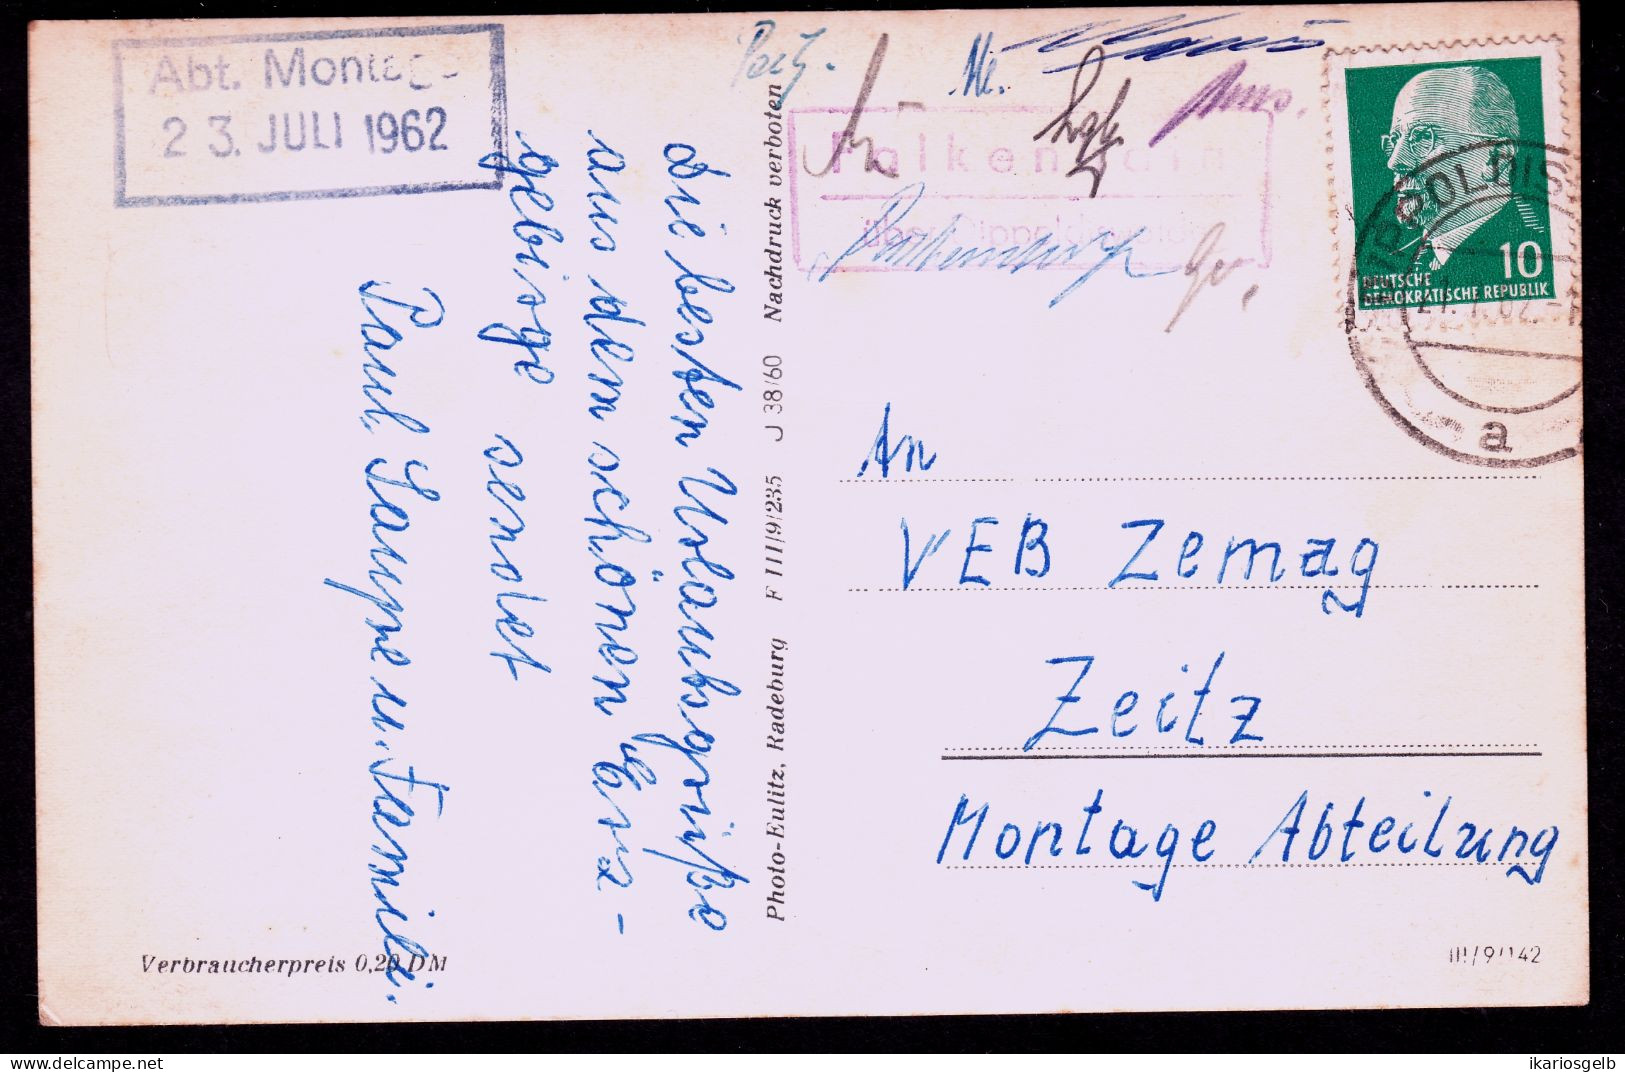 Abt. Montage
23. JULI 1962
Die besten Urlaubsgrüße
aus dem schönen Erz-
gebirge sendet
Paul Saupe u. Familie.
Verbraucherpreis 0,20 DM
Photo-Eulitz, Radeburg F III/9/235 J 38/60 Nachdruck verboten
Falkenhain
über Dippoldiswalde
10
DEUTSCHE
DEMOKRATISCHE REPUBLIK
a
An
VEB Zemag
Zeitz
Montage Abteilung
III/9/142
ikariosgelb